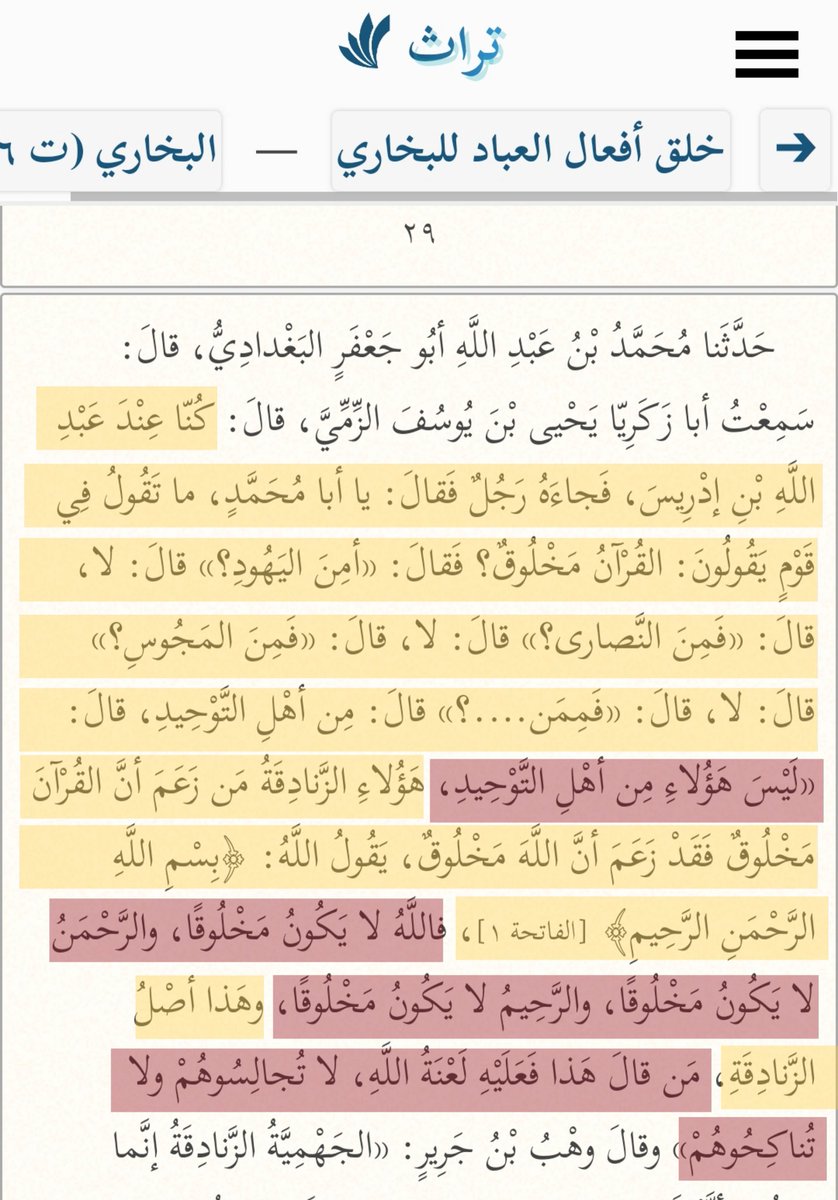 تراث
خلق أفعال العباد للبخاري — البخاري (ت ٦
٢٩
حَدَّثَنا مُحَمَّدُ بْنُ عَبْدِ اللَّهِ أبُو جَعْفَرٍ البَغْدادِيُّ، قالَ:
سَمِعْتُ أبا زَكَرِيّا يَحْيى بْنَ يُوسُفَ الزِّمِّيَّ، قالَ: كُنّا عِنْدَ عَبْدِ
اللَّهِ بْنِ إدْرِيسَ، فَجاءَهُ رَجُلٌ فَقالَ: يا أبا مُحَمَّدٍ، ما تَقُولُ فِي
قَوْمٍ يَقُولُونَ: القُرْآنُ مَخْلُوقٌ؟ فَقالَ: «أمِنَ اليَهُودِ؟» قالَ: لا،
قالَ: «فَمِنَ النَّصارى؟» قالَ: لا، قالَ: «فَمِنَ المَجُوسِ؟»
قالَ: لا، قالَ: «فَمِمَن....؟» قالَ: مِن أهْلِ التَّوْحِيدِ، قالَ:
«لَيْسَ هَؤُلاءِ مِن أهْلِ التَّوْحِيدِ، هَؤُلاءِ الزَّنادِقَةُ مَن زَعَمَ أنَّ القُرْآنَ
مَخْلُوقٌ فَقَدْ زَعَمَ أنَّ اللَّهَ مَخْلُوقٌ، يَقُولُ اللَّهُ: ﴿بِسْمِ اللَّهِ
الرَّحْمَنِ الرَّحِيمِ﴾ [الفاتحة ١]، فاللَّهُ لا يَكُونُ مَخْلُوقًا، والرَّحْمَنُ
لا يَكُونُ مَخْلُوقًا، والرَّحِيمُ لا يَكُونُ مَخْلُوقًا، وهَذا أصْلُ
الزَّنادِقَةِ، مَن قالَ هَذا فَعَلَيْهِ لَعْنَةُ اللَّهِ، لا تُجالِسُوهُمْ ولا
تُناكِحُوهُمْ» وقالَ وهْبُ بْنُ جَرِيرٍ: «الجَهْمِيَّةُ الزَّنادِقَةُ إنَّما